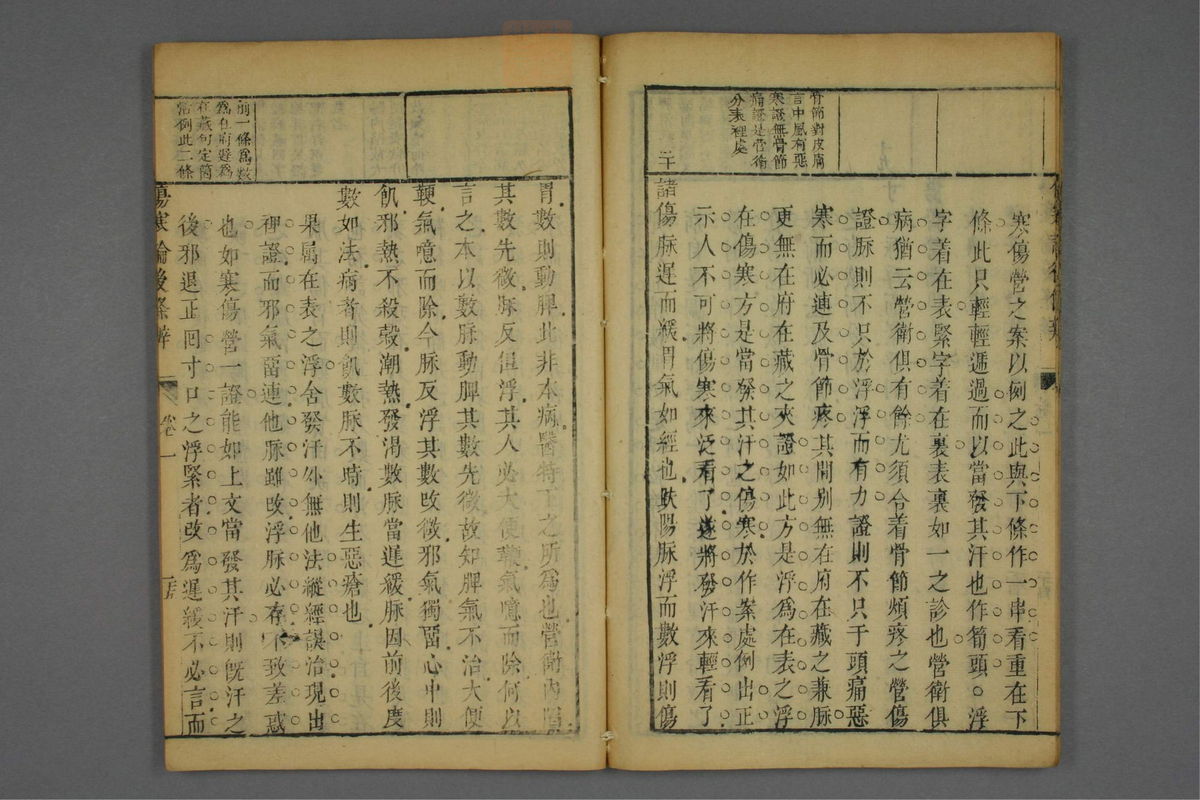 骨節對皮膚
言中風有惡
寒證無骨節
痛證是營衛
分表裡處
二十
寒傷營之案以例之此與下條作一串看重在下
條此只輕輕遞過而以當發其汗也作箭頭○浮
字着在表緊字着在裏表裏如一之診也營衛俱
病猶云營衛俱有餘尤須合着骨節煩疼之營傷
證脉則不只於浮浮而有力證則不只于頭痛惡
寒而必連及骨節疼其間别無在府在藏之兼脉
更無在府在藏之夾證如此方是浮爲在表之浮
在傷寒方是當發其汗之傷寒於作案處例出正
示人不可將傷寒來泛看了遂將發汗來輕看了
諸傷脉遲而緩胃氣如經也趺陽脉浮而數浮則傷
胃數則動脾此非本病醫特下之所爲也營衛內陷
其數先微脉反但浮其人必大便鞕氣噫而除何以
言之本以數脉動脾其數先微故知脾氣不治大便
鞕氣噫而除今脉反浮其數改微邪氣獨留心中則
飢邪熱不殺穀潮熱發渴數脉當遲緩脉因前後度
數如法病者則飢數脉不時則生惡瘡也
果屬在表之浮舍發汗外無他法縱經誤治現出
裡證而邪氣留連他脉雖改浮脉必存不致差惑
也如寒傷營一證能如上文當發其汗則旣汗之
後邪退正回寸口之浮緊者改爲遲緩不必言而
前一條爲數
爲在府遲爲
在藏句定箇
常例此二條
傷寒論後條辨
卷一